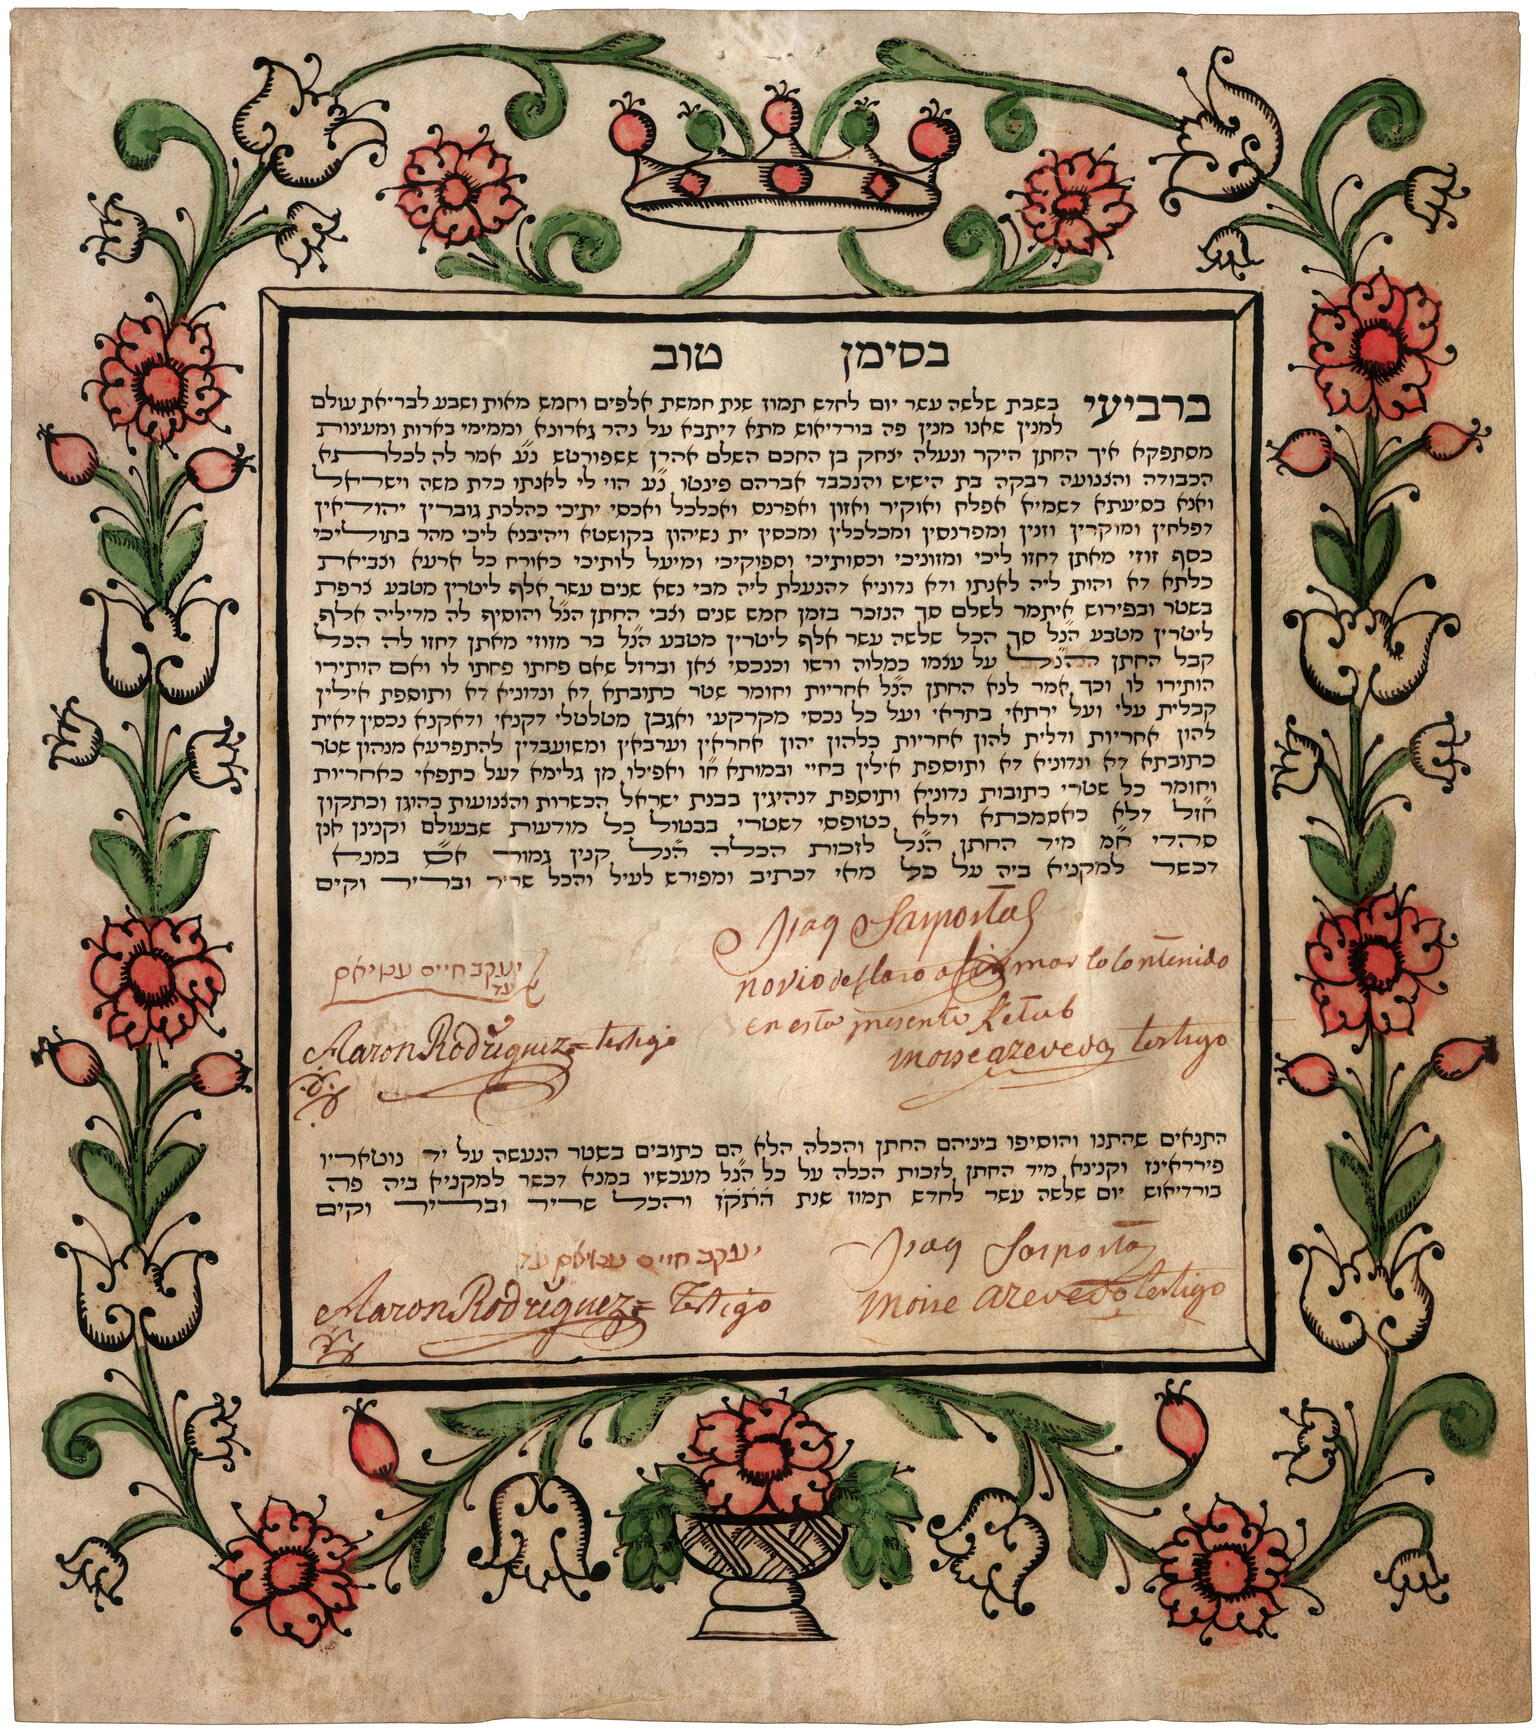 בסימן טוב
ברביעי בשבת שלשה עשר יום לחדש תמוז שנת חמשת אלפים וחמש מאות ושבע לבריאת עולם
למנין שאנו מנין פה בורדיאוש מתא דיתבא על נהר גארונא וממימי בארות ומעינות
מסתפקא איך החתן היקר ונעלה יצחק בן החכם השלם אהרן ששפורטש נ״ע אמר לה לכלתא
הכבודה והצנועה רבקה בת הישיש והנכבד אברהם פינטו נ״ע הוי לי לאנתו כדת משה וישראל
ואנא בסיעתא דשמיא אפלח ואוקיר ואזון ואפרנס ואכלכל ואכסי יתיכי כהלכת גוברין יהודאין
דפלחין ומוקרין וזנין ומפרנסין ומכלכלין ומכסין ית נשיהון בקושטא ויהיבנא ליכי מהר בתוליכי
כסף זוזי מאתן דחזו ליכי ומזוניכי וכסותיכי וספוקיכי ומיעל לותיכי כאורח כל ארעא וצביאת
כלתא דא והות ליה לאנתו ודא נדוניא דהנעלת ליה מבי נשא שנים עשר אלף ליטרין מטבע צרפת
בשטר ובפירוש איתמר לשלם סך הנזכר בזמן חמש שנים וצבי החתן הנ״ל והוסיף לה מדיליה אלף
ליטרין מטבע הנ״ל סך הכל שלשה עשר אלף ליטרין מטבע הנ״ל בר מזוזי מאתן דחזו לה הכל
קבל החתן הנ״ל על עצמו כמלוה ורשו וכנכסי צאן וברזל שאם פחתו פחתו לו ואם הותירו
הותירו לו וכך אמר לנא החתן הנ״ל אחריות וחומר שטר כתובתא דא ונדוניא דא ותוספת אילין
קבלית עלי ועל ירתאי בתראי ועל כל נכסי מקרקעי ואגבן מטלטלי דקנאי ודאקנא נכסין דאית
להון אחריות ודלית להון אחריות כלהון יהון אחראין וערבאין ומשועבדין להתפרעא מנהון שטר
כתובתא דא ונדוניא דא ותוספת אילין בחיי ובמותא ח״ו ואפילו מן גלימא דעל כתפאי כאחריות
וחומר כל שטרי כתובות נדוניא ותוספת דנהיגין בבנת ישראל הכשרות והצנועות כהוגן וכתקון
חז״ל דלא כאסמכתא ודלא כטופסי דשטרי בבטול כל מודעות שבעולם וקנינן אנן
סהדי ח״מ מיד החתן הנ״ל לזכות הכלה הנ״ל קנין גמור במנא
דכשר למקניא ביה על כל מאי דכתיב ומפורש לעיל והכל שריר ובריר וקים
Isaq Sarportas
novio declaro afirmar lo contenido
en esta presente Ketub
יעקב חיים עטיאס
עד
Aaron Rodriguez= testigo
Moise azevedo testigo
התנאים שהתנו והוסיפו ביניהם החתן והכלה הלא הם כתובים בשטר הנעשה על יד נוטאריו
פירראינז וקנינא מיד החתן לזכות הכלה על כל הנ״ל מעכשיו במנא דכשר למקניא ביה פה
בורדיאוש יום שלשה עשר לחדש תמוז שנת התקז והכל שריר ובריר וקים
Isaq Sarportas
יעקב חיים עטיאס עד
Moise azevedo testigo
Aaron Rodriguez= Testigo